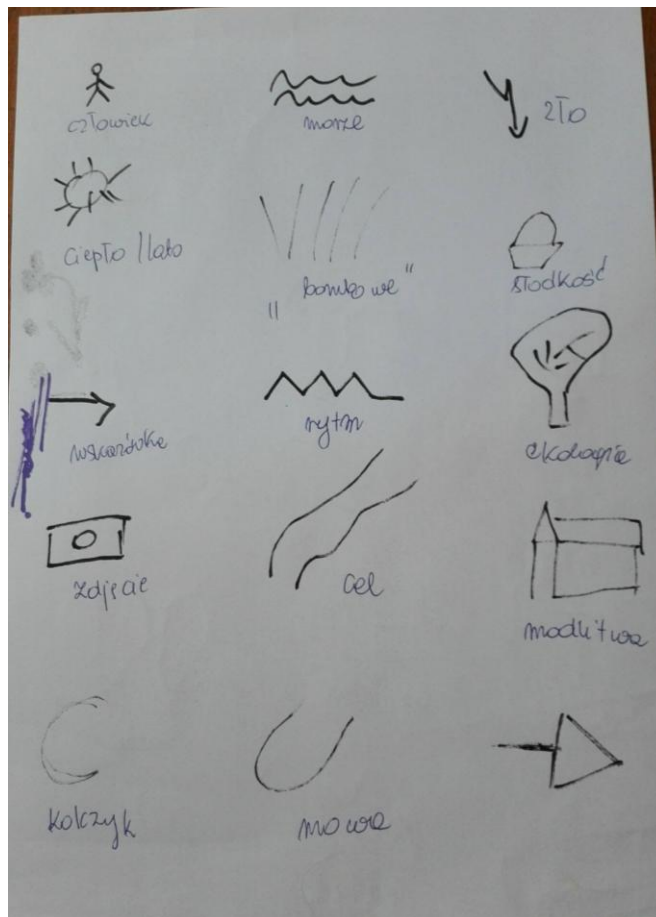 człowiek
morze
zło
ciepło / lato
słodkość
wskazówka
rytm
ekologia
zdjęcie
cel
modlitwa
kolczyk
mowa